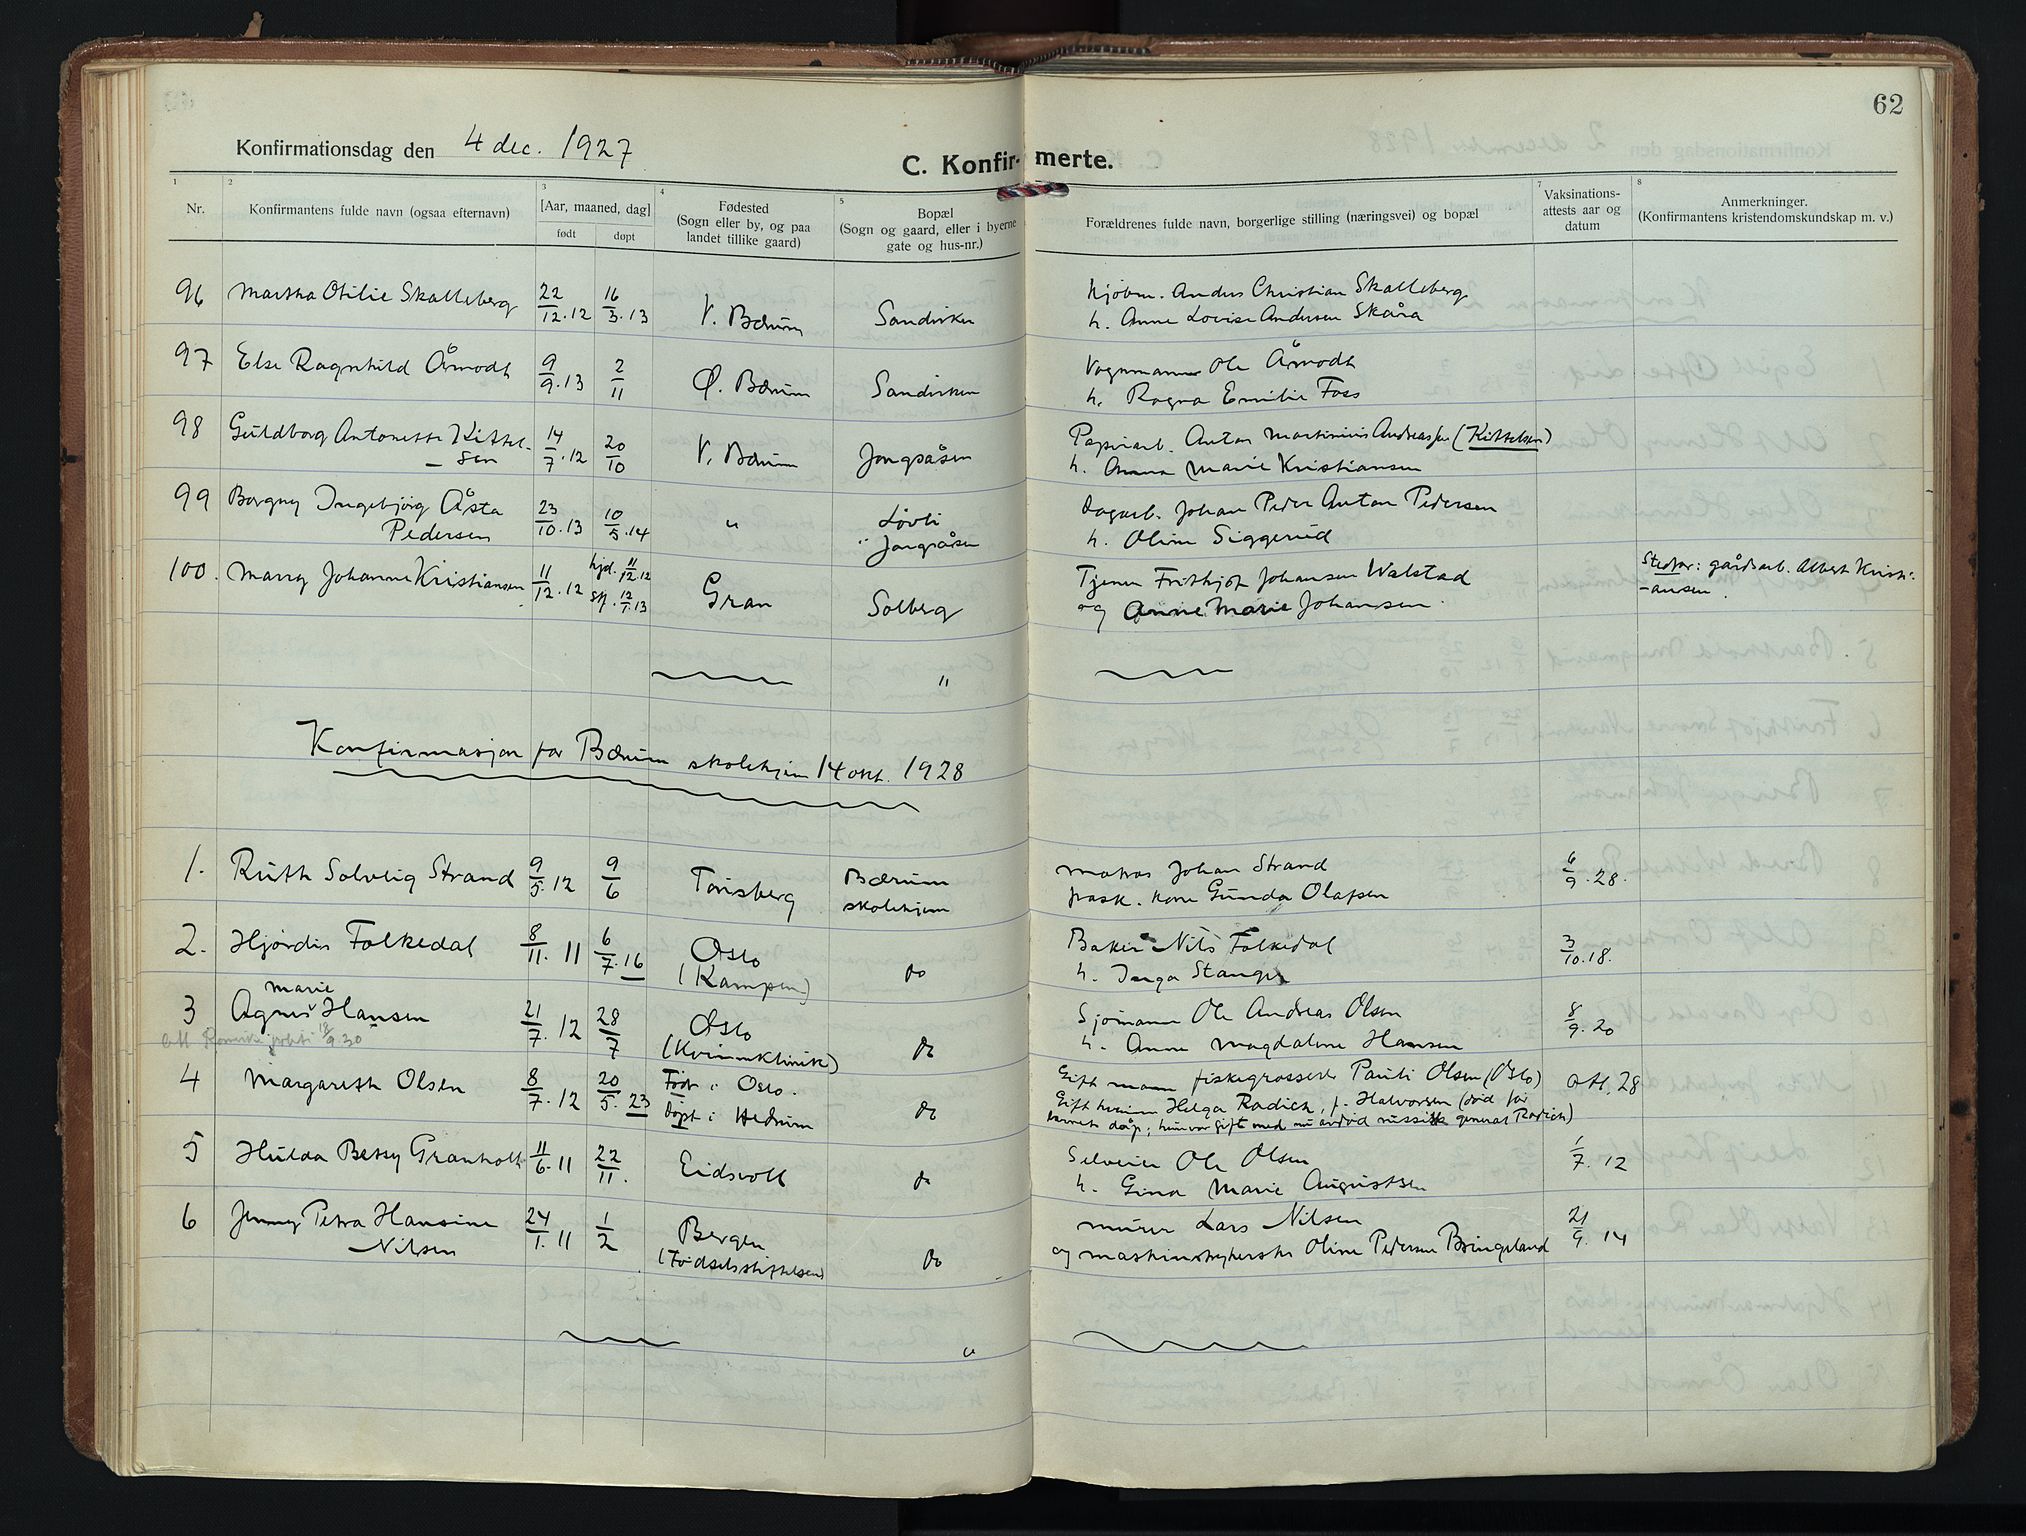 62
Konfirmationsdag den 4 dec. 1927
C. Konfir- merte.
1 2 3 4 5 7 8
Nr.
Konfirmantens fulde navn (ogsaa efternavn)
[Aar, maaned, dag]
født døpt
Fødested
(Sogn eller by, og paa
landet tillike gaard)
Bopæl
(Sogn og gaard, eller i byerne
gate og hus-nr.)
Forældrenes fulde navn, borgerlige stilling (næringsvei) og bopæl
Vaksinations-
attests aar og
datum
Anmerkninger.
(Konfirmantens kristendomskundskap m. v.)
96 Martha Otilie Skalleberg 22/12.12 16/3.13 V. Bærum Sandviken
Kjøbm. Anders Christian Skalleberg
h. Anne Lovise Andersen Skåra
97 Else Ragnhild Åmodt 9/9.13 2/11 Ø. Bærum Sandviken
Vognmann Ole Åmodt
h. Ragna Emilie Foss
98 Guldborg Antonette Kittel-
- sen 14/7.12 20/10 V. Bærum Jongsåsen
Papirarb. Anton Martinius Andreassen (Kittelsen)
h. Anna Marie Kristiansen
99 Borgny Ingebjörg Åsta
Pedersen 23/10.13 10/5.14 " Løvli
" Jongsåsen
Dagarb. Johan Peder Anton Pedersen
h. Oline Siggerud
100. Marry Johanne Kristiansen 11/12.12 hjd. 11/12.12
stf. 12/1.13 Gran Solberg
Tjener Frithjof Johansen Walstad
og Anne Marie Johansen
Stedfar: gårdsarb. Albert Kristi-
-ansen.
"
Konfirmasjon for Bærum skolehjem 14 okt. 1928
1. Ruth Solveig Strand 9/5.12 9/6 Tønsberg Bærum
skolehjem
matros Johan Strand
frask. kone Gunda Olafsen
6/9.28.
2. Hjördis Folkedal 8/11.11 6/7.16 Oslo
(Kampen) do
Baker Nils Folkedal
h. Inga Stanger
3/10.18.
3 Agnes Marie Hansen 21/7.12 28/7 Oslo
(Kvinneklinik) do
Sjömann Ole Andreas Olsen
h. Anne Magdalene Hansen
8/9.20
att. politi 18/9.30
4 Margareth Olsen 8/7.12 20/5.23 Född i Oslo.
Döpt i Hedrum do
Gift mann fiskegrosserer Pauli Olsen (Oslo)
Gift kvinne Helga Radich, f. Halvorsen (död før
barnets dåp; hun var gift med nu avdöd russisk general Radich)
att. 28
5 Hulda Betsy Granholt 11/6.11 22/11. Eidsvoll do
Selveier Ole Olsen
h. Gina Marie Augustsen
1/7.12
6 Jenny Petra Hansine
Nilsen 24/1.11 1/2 Bergen
(Födselsstiftelsen) do
murer Lars Nilsen
og maskinstrykerske Oline Pedersen Bringeland
21/9.14
"